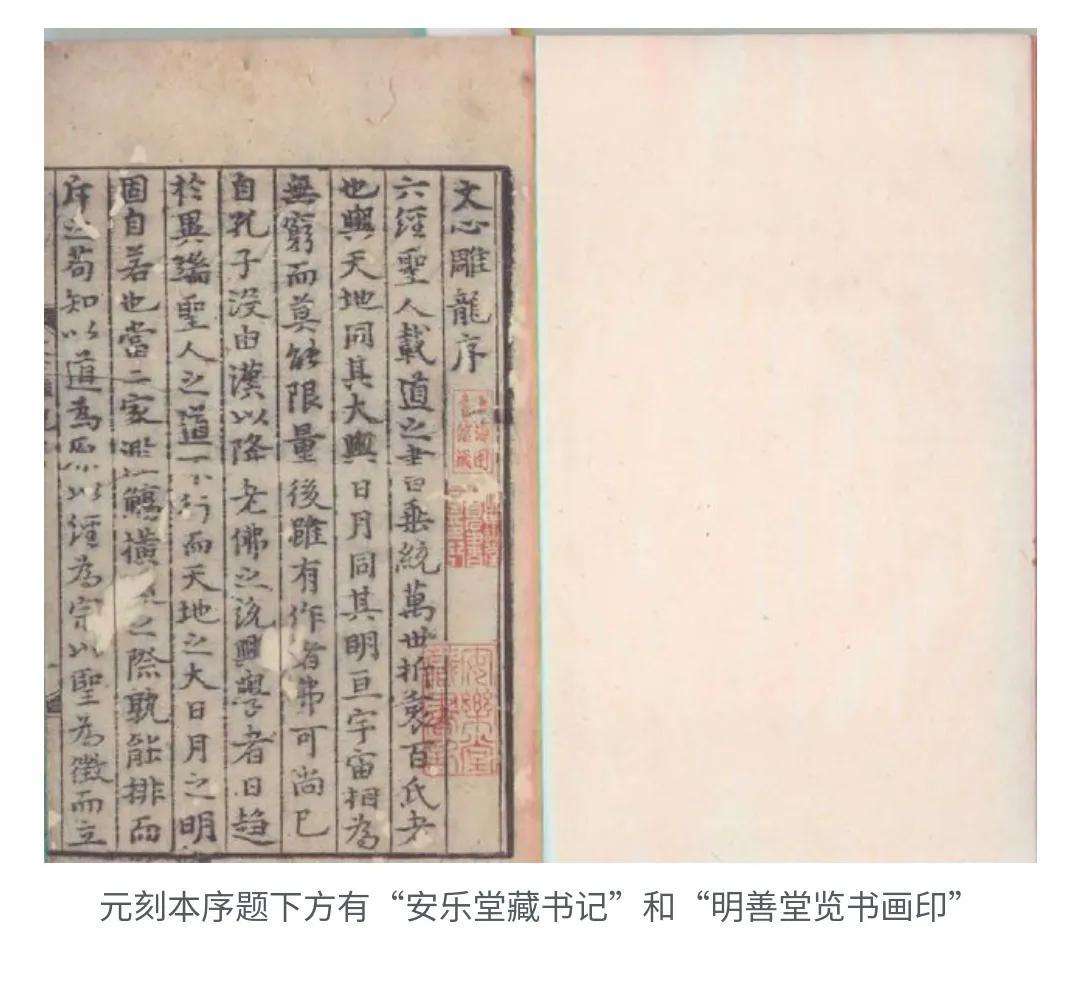 文心雕龍序
上海圖書館藏
安樂堂藏書記
六經聖人載道之書垂統萬世折衷百氏者
也與天地同其大與日月同其明亘宇宙相為
無窮而莫能限量後雖有作者弗可尚已
自孔子没由漢以降老佛之說興學者日趍
於異端聖人之道不行而天地之大日月之明
固自若也當二家濫觴橫之際孰能排而
斥之苟知以道為原以經為宗以聖為徵而立
元刻本序题下方有“安乐堂藏书记”和“明善堂览书画印”